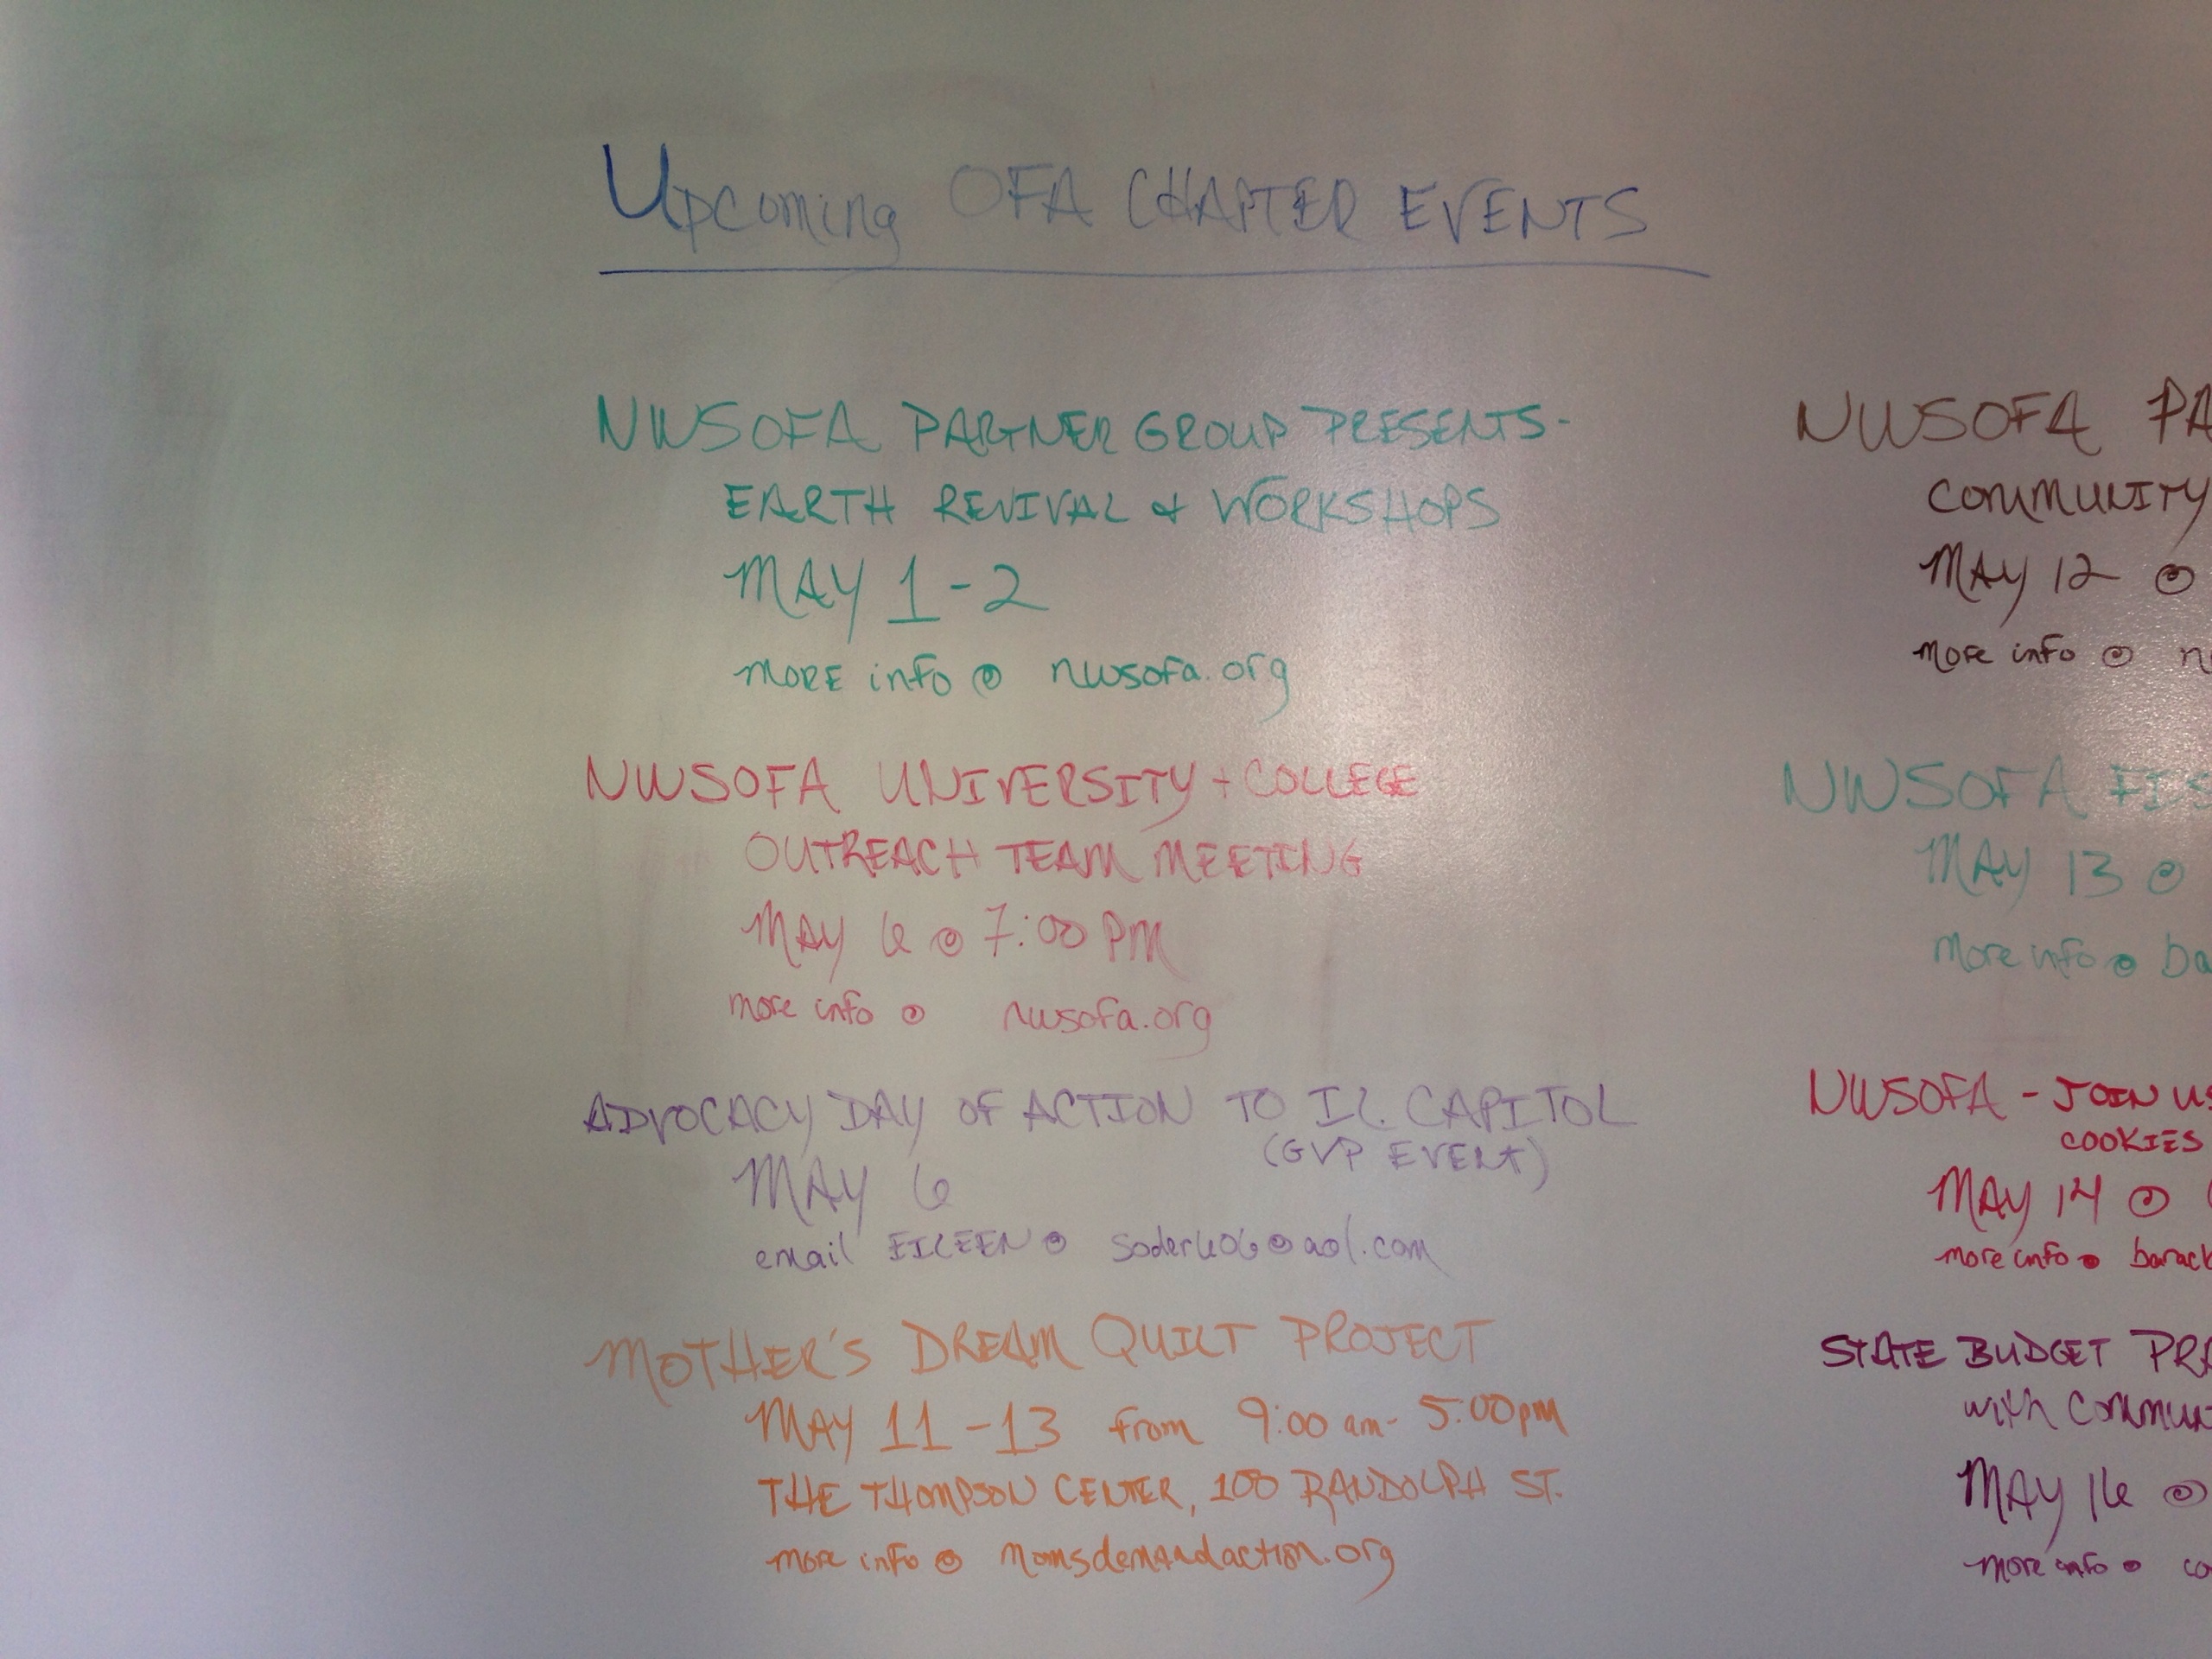 Upcoming OFA CHAPTER EVENTS
NWSOFA PARTNER GROUP PRESENTS-
EARTH REVIVAL & WORKSHOPS
MAY 1-2
MORE info @ nwsofa.org
NWSOFA UNIVERSITY + COLLEGE
OUTREACH TEAM MEETING
MAY 6 @ 7:00 PM
more info @ nwsofa.org
ADVOCACY DAY OF ACTION TO IL. CAPITOL
(GVP EVENT)
MAY 6
email EILEEN @ soder606@aol.com
MOTHER'S DREAM QUILT PROJECT
MAY 11-13 from 9:00 am- 5:00pm
THE THOMPSON CENTER, 100 RANDOLPH ST.
more info @ momsdemandaction.org
NWSOFA PA
COMMUNITY
MAY 12 @
more info @ n
NWSOFA FIS
MAY 13 @
more info @ ba
NWSOFA - JOIN US
COOKIES
MAY 14 @
more info @ barack
STATE BUDGET PRA
with COMMUN
MAY 16 @
more info @ co